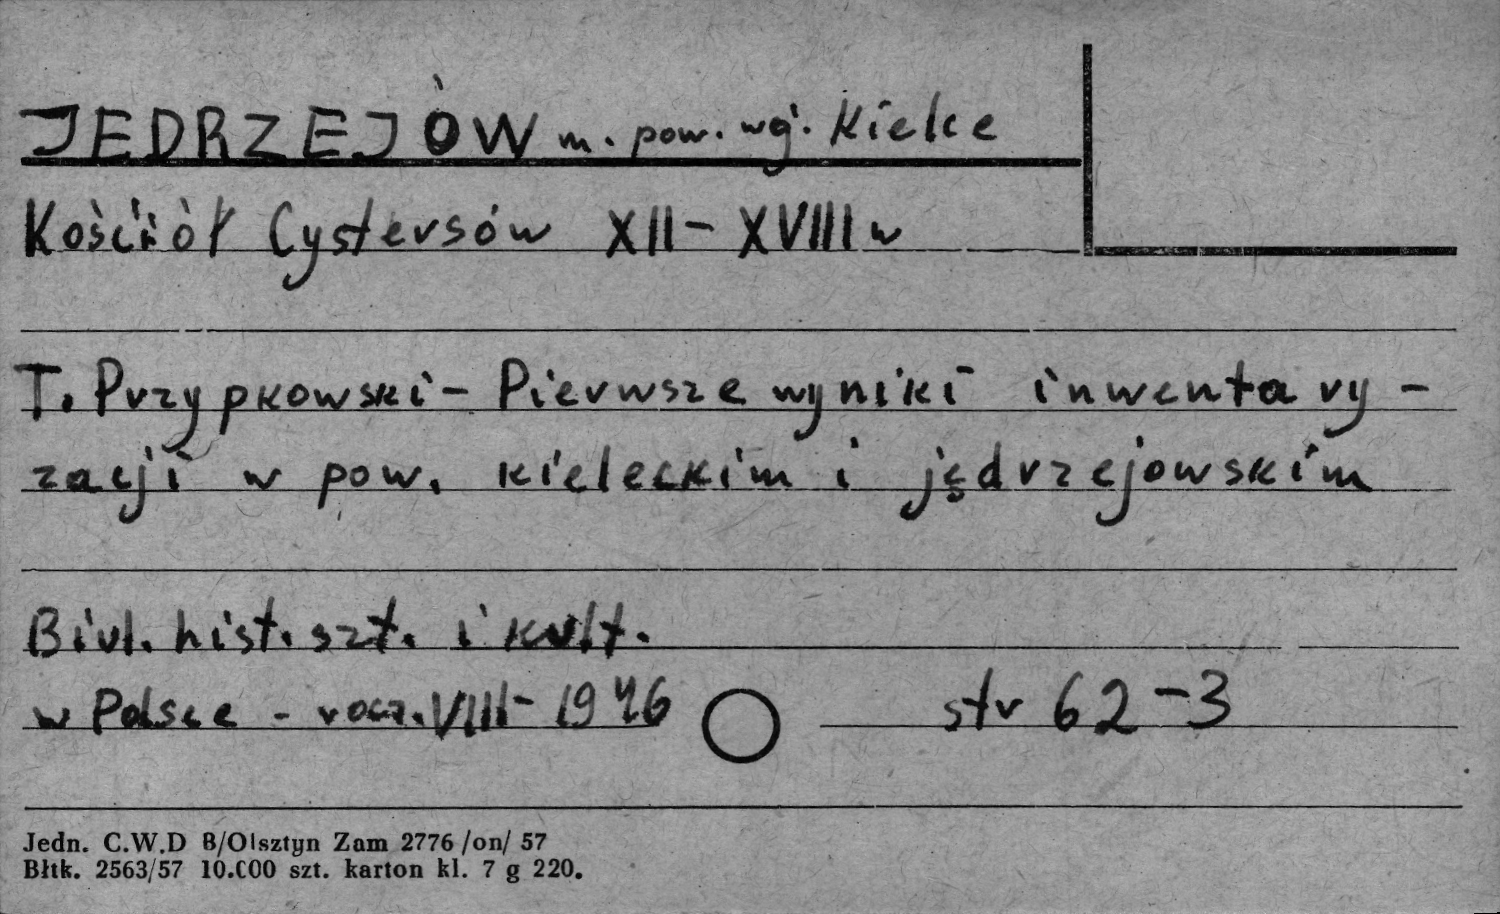 JEDRZEJÓW m. pow. wg. Kielce
Kościół Cystersów XII - XVIII w
T. Przypkowski - Pierwsze wyniki inwentary-
zacji w pow. kieleckim i jędrzejowskim
Biul. hist. szt. i kult.
w Polsce - rocz. VIII - 1946 str 62-3
Jedn. C.W.D B/Olsztyn Zam 2776 /on/ 57
Błtk. 2563/57 10.000 szt. karton kl. 7 g 220.